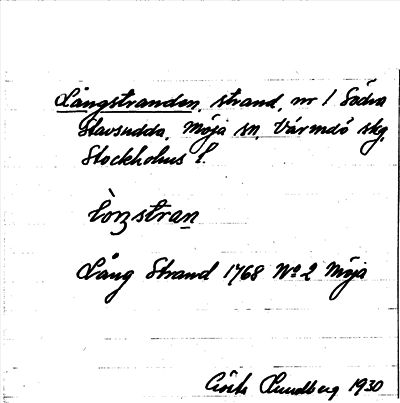 Långstranden, strand, nr 1 Södra
Stavsudda, Möja sn, Värmdö skg,
Stockholms l.
Lòŋstran
Lång Strand 1768 No 2 Möja
Lundberg 1930